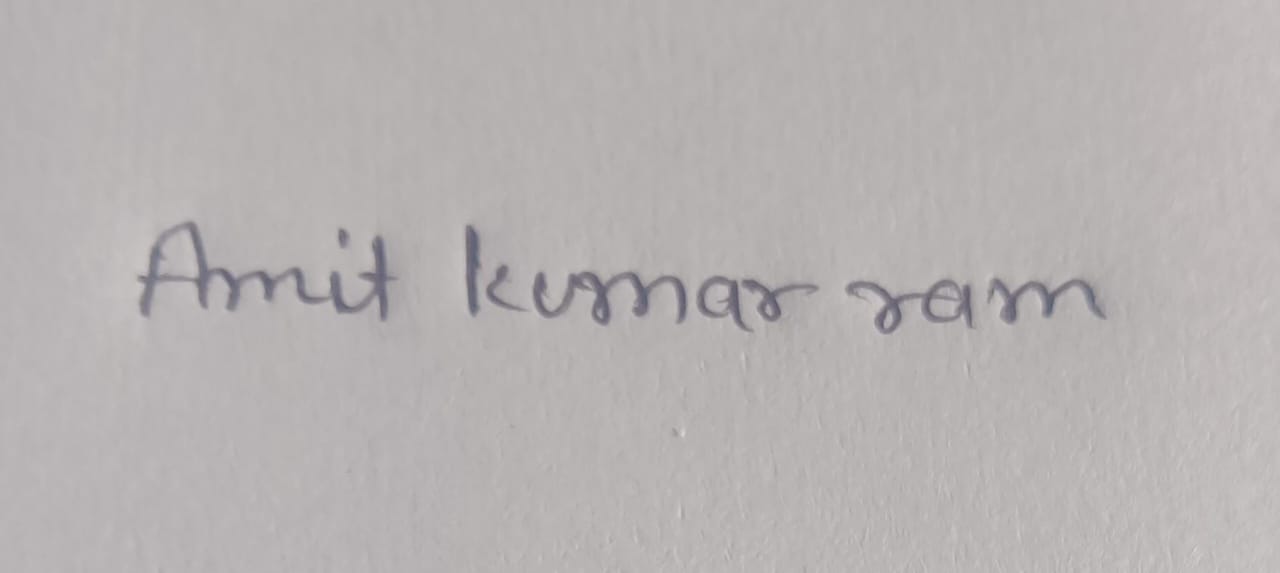 Amit kumar ram